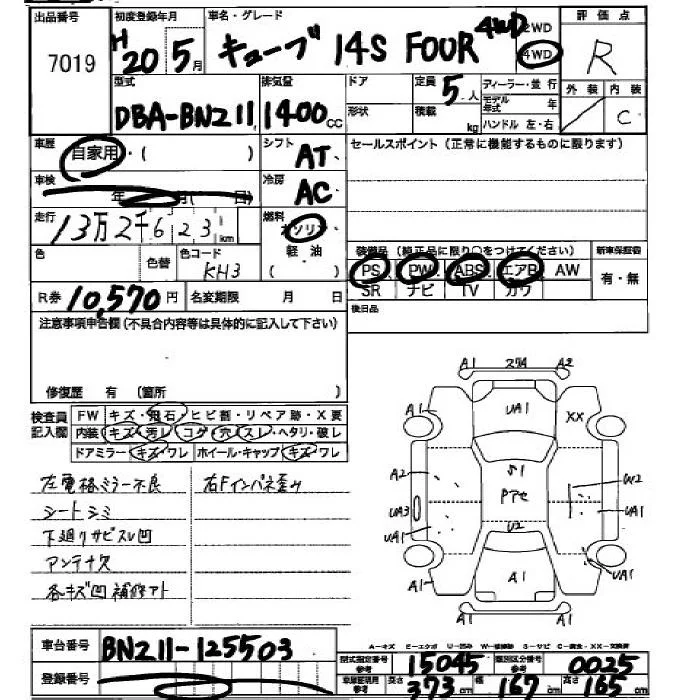 出品番号 初度登録年月 車名・グレード 評価点
7019 H20 5月 キューブ 14S FOUR 4WD 2WD 4WD R
型式 排気量 ドア 定員 5人 ディーラー・並行 外装 内装
DBA-BNZ11 1400cc 形状 積載 kg モデル年式 年 C
ハンドル 左・右
車歴 自家用・( ) シフト AT セールスポイント(正常に機能するものに限ります)
車検 年 月( 日) 冷房 AC
走行 13万2千623km 燃料 ガソリン 軽油 ( )
装備品(純正品に限り○をつけてください) 新車保証書
色 色替 色コード KH3 PS PW ABS エアB AW 有・無
SR ナビ TV カワ
R券 10,570円 名変期限 月 日 後日品
注意事項申告欄(不具合内容等は具体的に記入して下さい)
修復歴 有 (箇所 )
検査員記入欄 FW キズ・飛石・ヒビ割・リペア跡・X要
内装 キズ・汚レ・コゲ・穴・スレ・ヘタリ・破レ
ドアミラー キズ・ワレ ホイール・キャップ キズ・ワレ
左電格ミラー不良 右Fインパネ歪み
シートシミ
下廻りサビスレ凹
アンテナ欠
各キズ凹補修アト
A1 スリA A2
A1 UA1 XX
A2 S1 U2
UA3 Pアセ UA1
UA1 U2 UA1
A1 A1 A1
A1 A1
A-キズ E-エクボ U-凹み W-補修跡 S-サビ C-腐食・XX-交換済
車台番号 BNZ11-125503
登録番号
型式指定番号 参考 15045 類別区分番号 参考 0025
車庫証明用 参考 長さ 373cm 幅 167cm 高さ 165cm